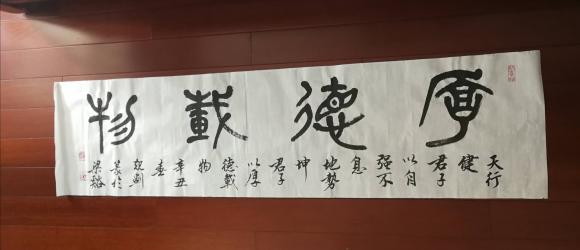 厚德載物
天行
健
君子
以自
强不
息
地勢
坤
君子
以厚
德載
物
辛丑
春
於
梁谿